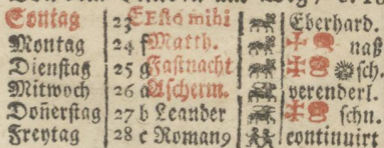 Sontag 23 Esto mihi Eberhard.
Montag 24 f Matth. naß
Dienstag 25 g Fastnacht sch.
Mitwoch 26 a Ascherm. verenderl.
Don̄erstag 27 b Leander schn.
Freytag 28 c Roman9 continuirt